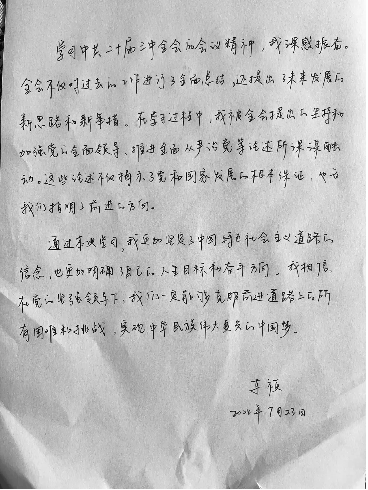 学习中共二十届三中全会的会议精神，我深感振奋。
全会不仅对过去的工作进行了全面总结，还提出了未来发展的
新思路和新举措。在学习过程中，我被全会提出的坚持和
加强党的全面领导、推进全面从严治党等论述所深深触
动。这些论述不仅揭示了党和国家发展的根本保证，也为
我们指明了前进的方向。
通过本次学习，我更加坚定了中国特色社会主义道路的
信念，也更加明确了自己的人生目标和奋斗方向。我相信
在党的坚强领导下，我们一定能够克服前进道路上的所
有困难和挑战，实现中华民族伟大复兴的中国梦。
2024年7月23日